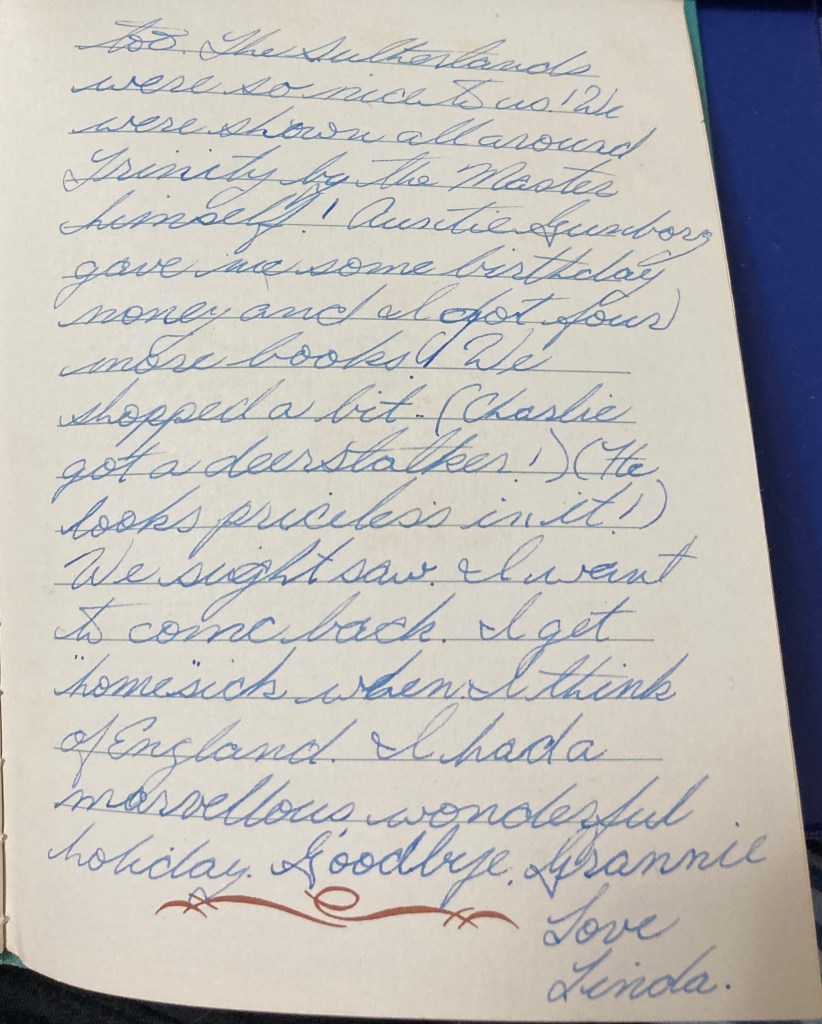 too. The Sutherlands
were so nice to us! We
were shown all around
Trinity by the Master
himself! Auntie Gunborg
gave me some birthday
money and I got four
more books! We
shopped a bit - (Charlie
got a deerstalker!) (He
looks priceless in it!)
We sight saw. I want
to come back. I get
"homesick" when I think
of England. I had a
marvellous, wonderful
holiday. Goodbye, Grannie
Love
Linda.